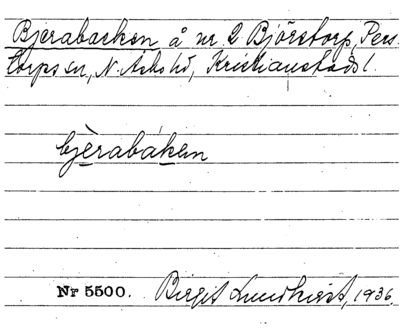 Bjerabacken å nr 2 Björstorp, Pers-
torps sn, N. Åsbo hd, Kristianstads l.
bjèrabáken
Nr 5500. Birgit Lundkvist, 1936.